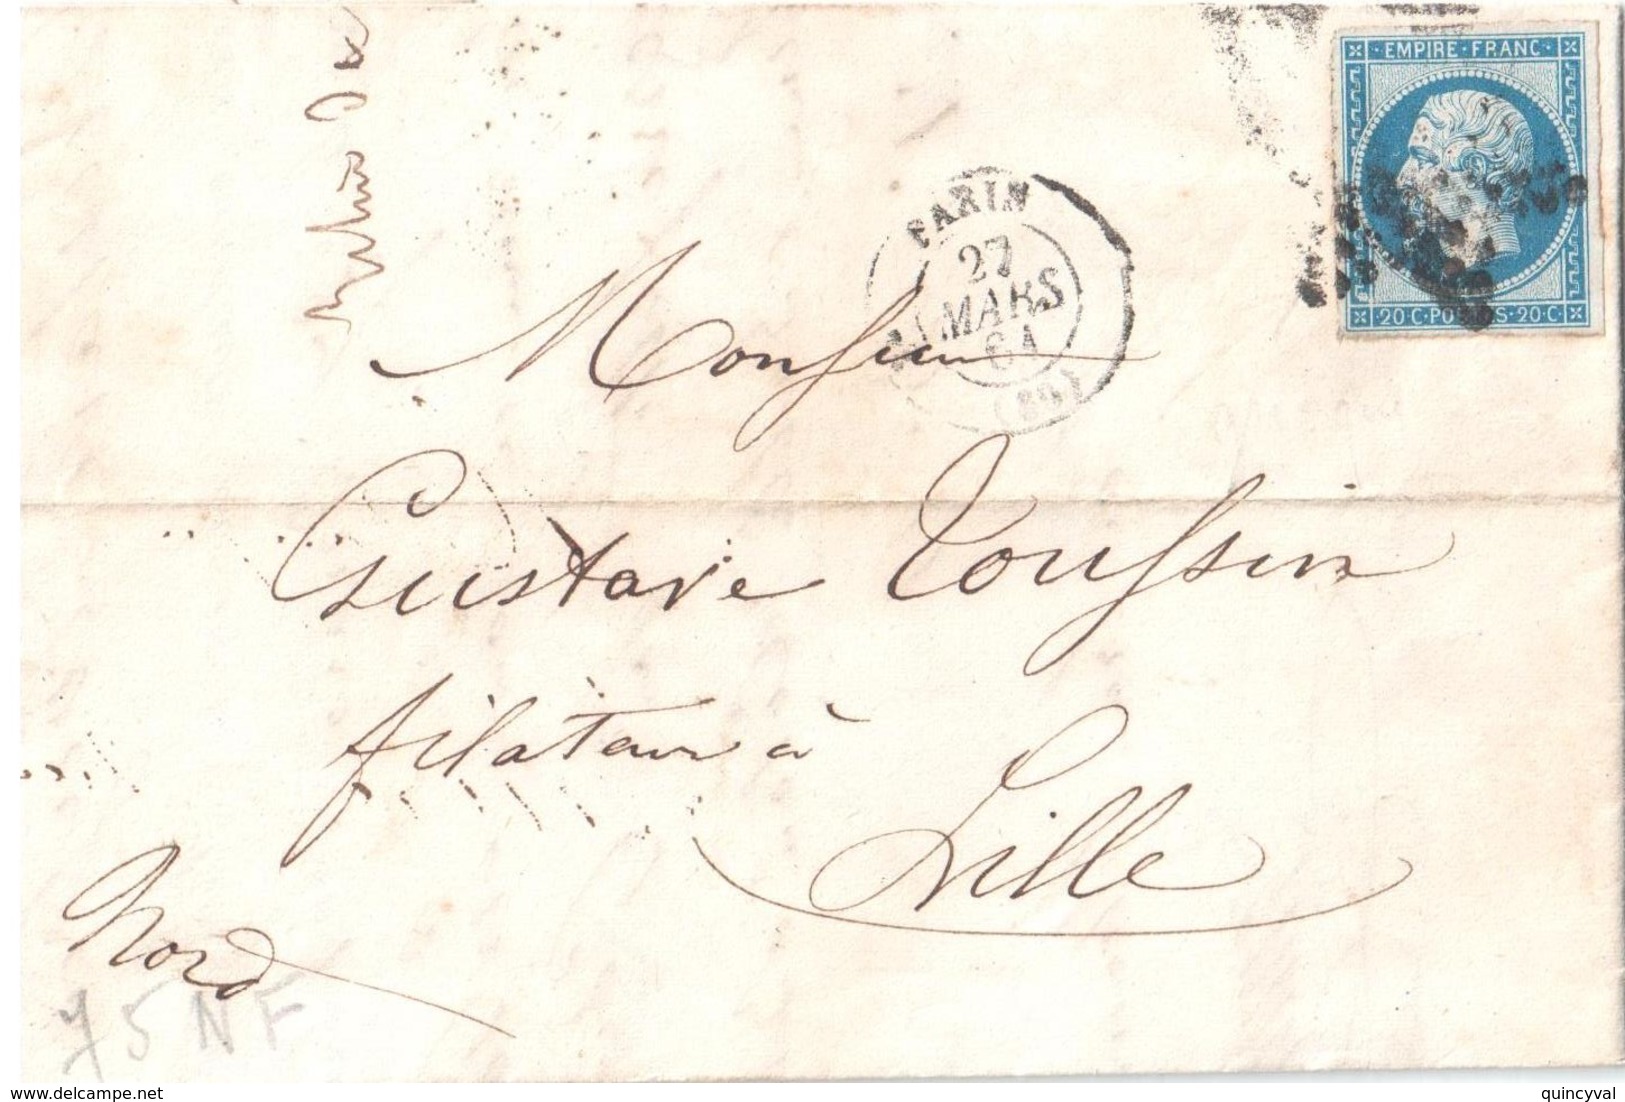 EMPIRE · FRANC ·
20 · C · POSTES · 20 · C ·
PARIS
27
MARS
61
(60)
Monsieur
Gustave Toussin
filateur à
Lille
Nord
75 NF
www.delcampe.net
quincyval